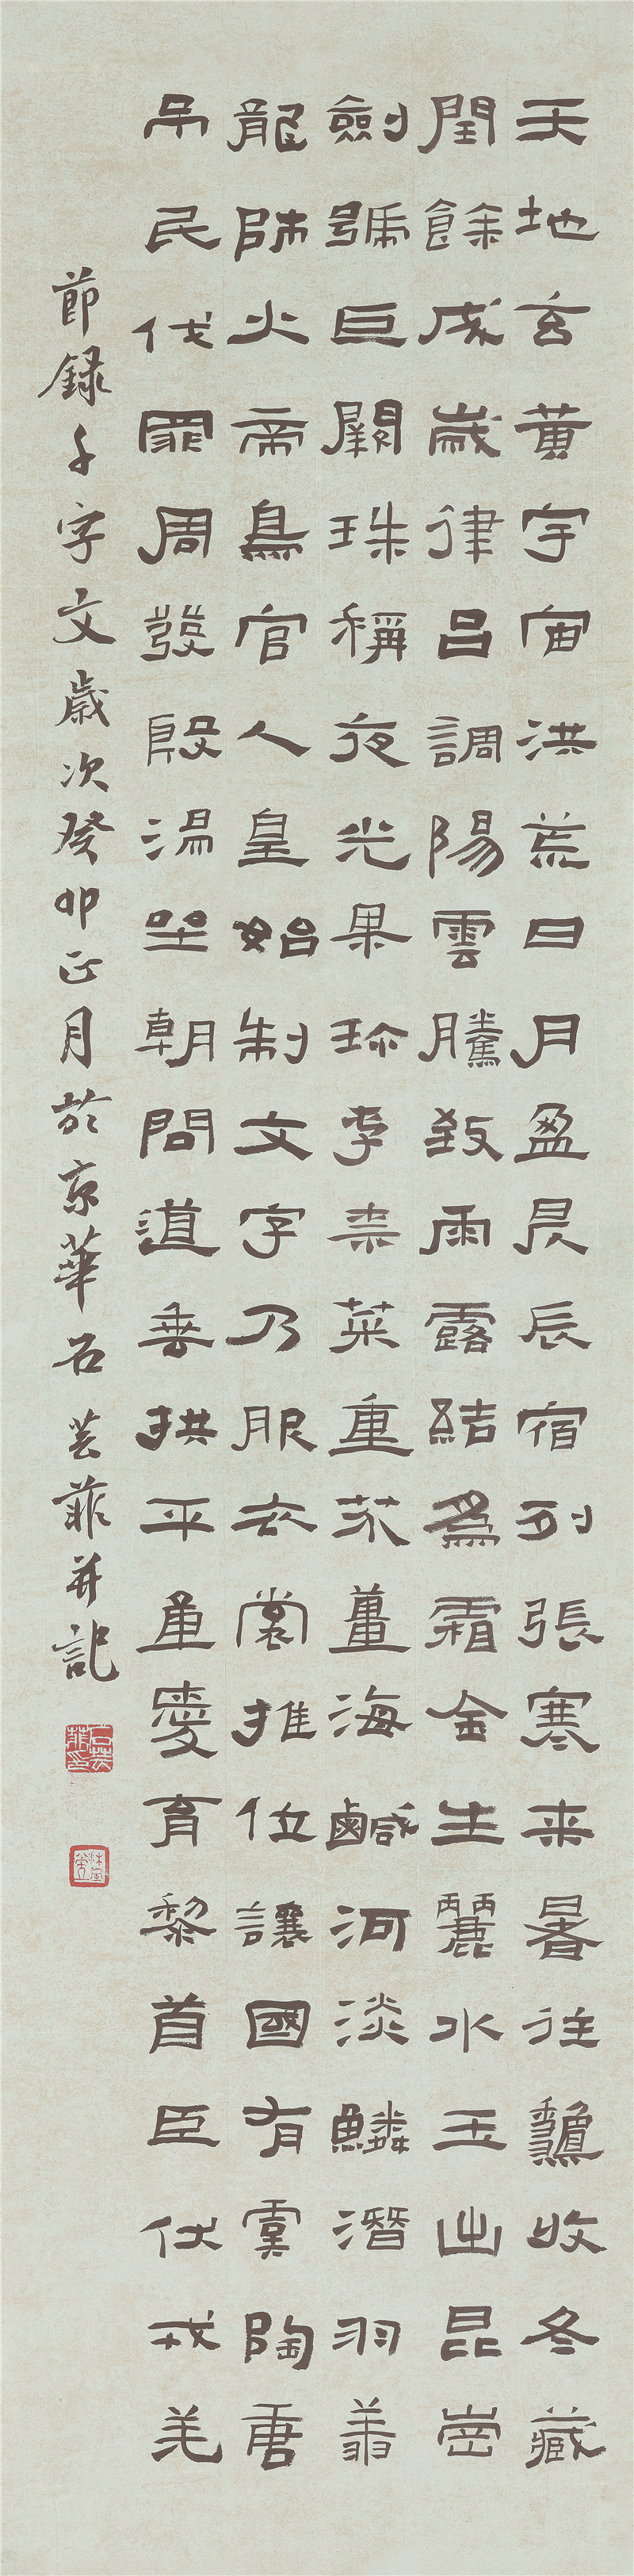 天地玄黃宇宙洪荒日月盈昃辰宿列張寒来暑往龝收冬藏
閏餘成歲律呂調陽雲騰致雨露結為霜金生麗水玉出昆崗
劍號巨闕珠稱夜光果珎李柰菜重芥薑海鹹河淡鱗潛羽翔
龍師火帝鳥官人皇始制文字乃服衣裳推位讓國有虞陶唐
吊民伐罪周發殷湯坐朝問道垂拱平章愛育黎首臣伏戎羌
節録千字文歲次癸卯正月於京華石芸菲并記
石芸菲印